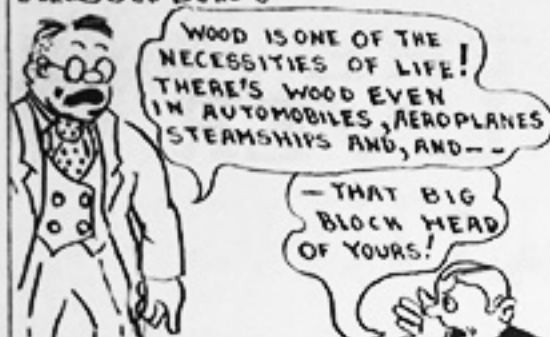 WOOD IS ONE OF THE
NECESSITIES OF LIFE!
THERE'S WOOD EVEN
IN AUTOMOBILES, AEROPLANES
STEAMSHIPS AND, AND--
-THAT BIG
BLOCK HEAD
OF YOURS!